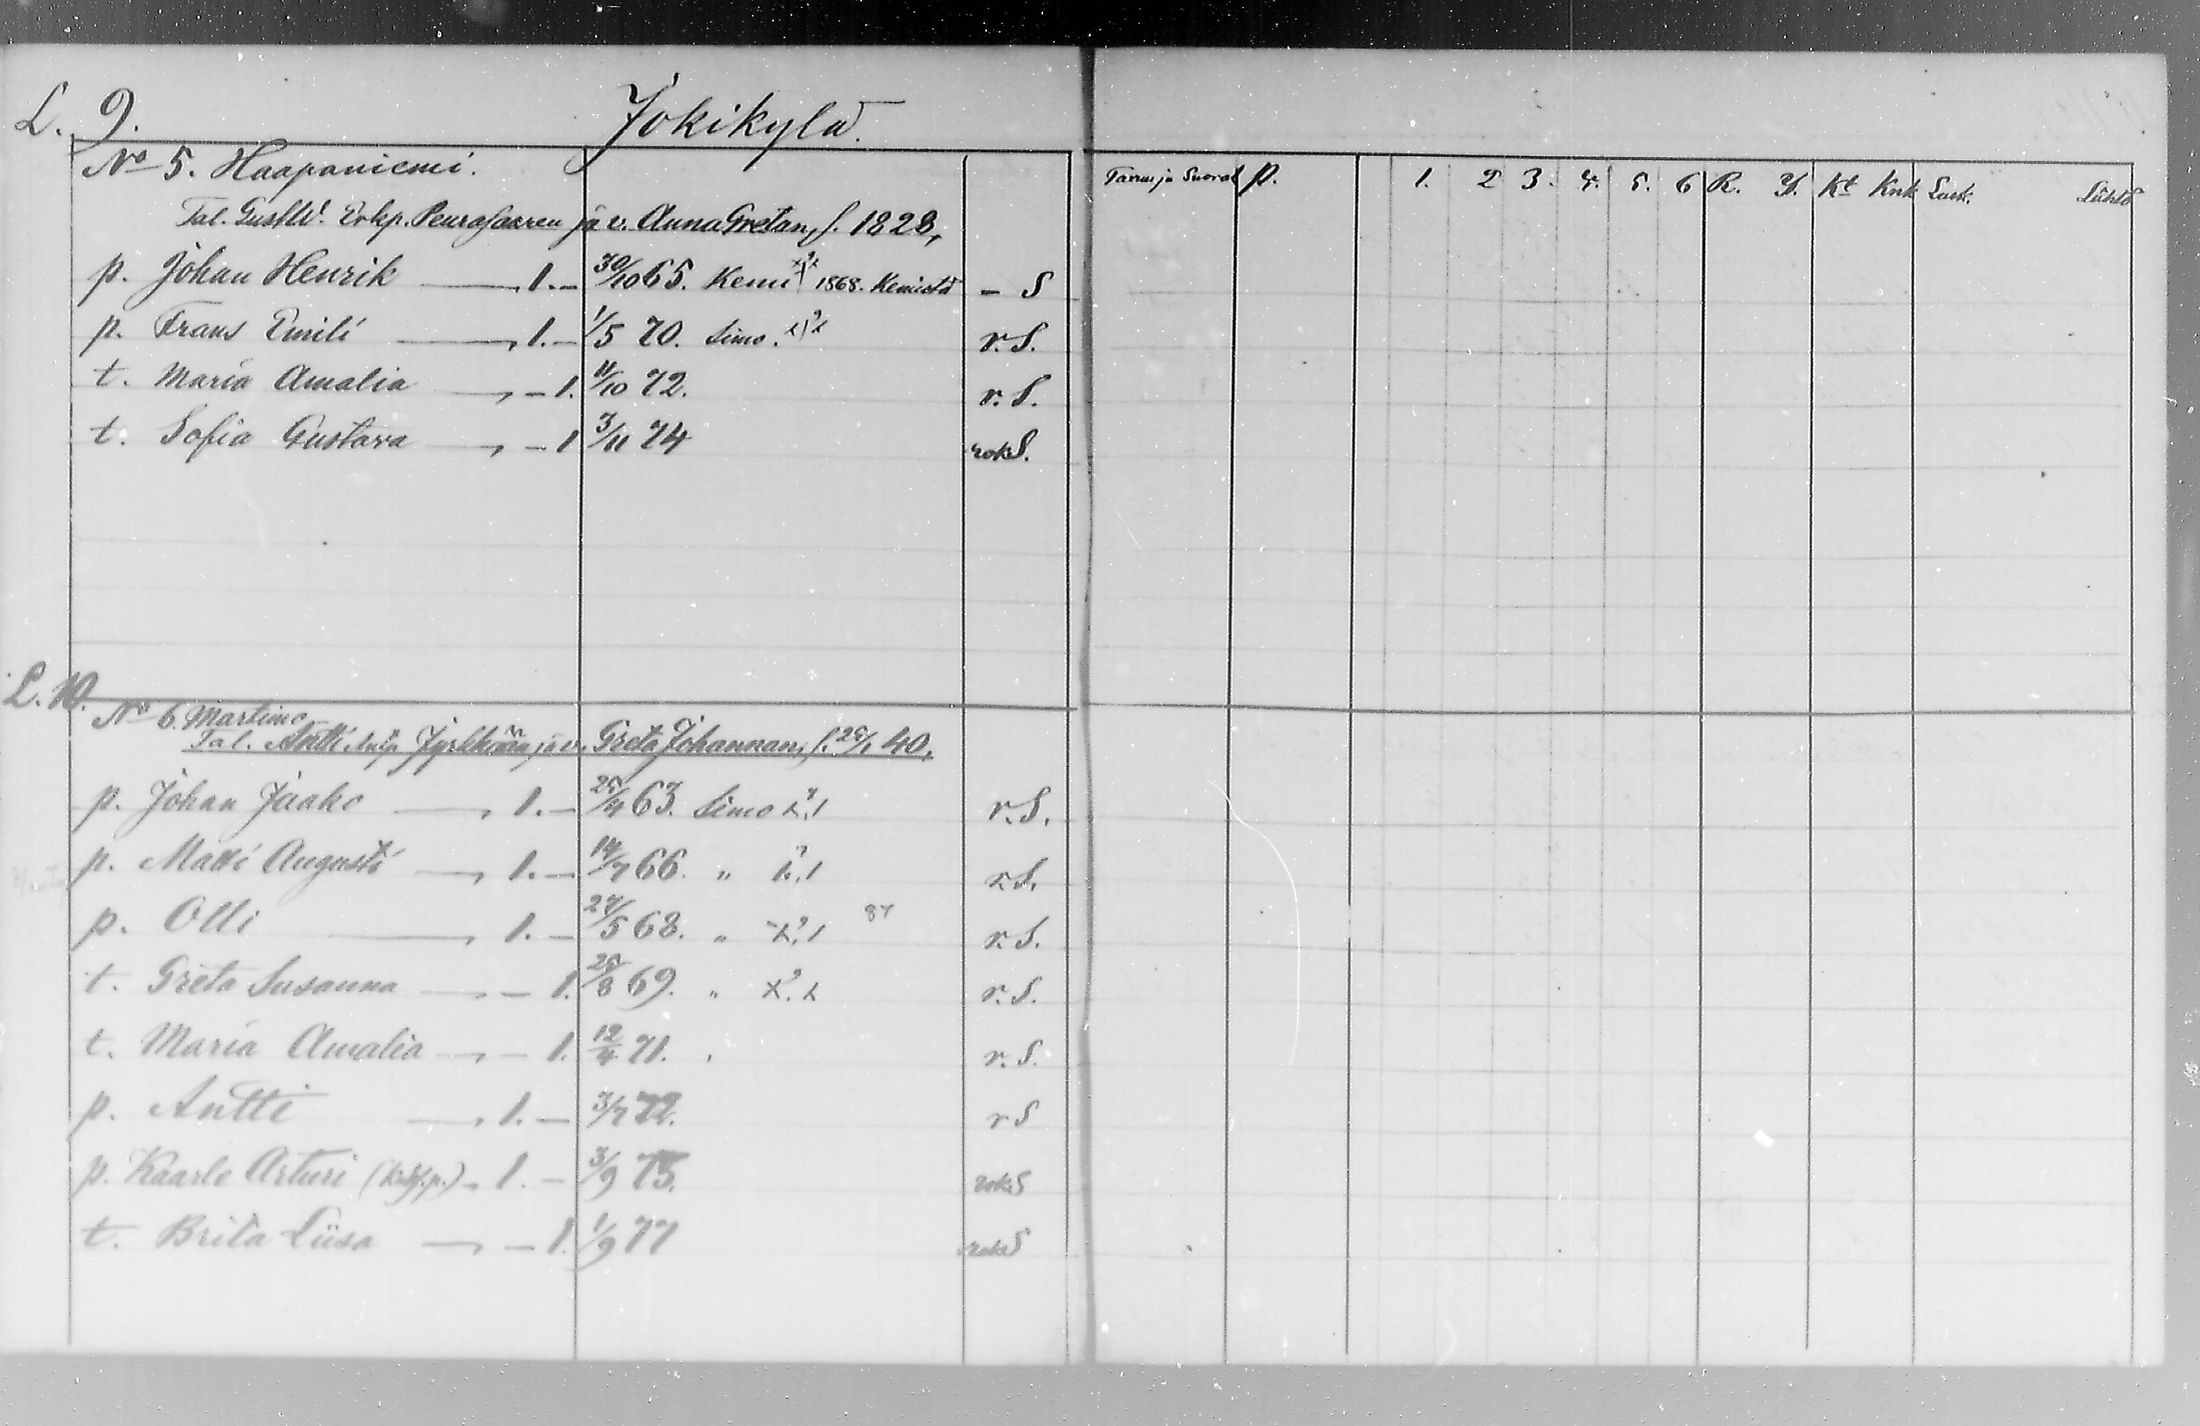 L. 9. Jokikylä.
No 5. Haapaniemi.
Tavus ja Suorat p. 1. 2 3. 4. 5. 6 R. Kt Knk Lask. Lähtö
Tal. Gust. Erkp. Peurasaaren ja v. Anna Gretan, s. 1828,
p. Johan Henrik 1. – 30/10 65. Kemi 1868. Kemistä – S
p. Frans Emili 1. – 1/5 70. Simo. r. S.
t. Maria Amalia – 1. 11/10 72. r. S.
t. Sofia Gustava – 1 3/11 74 rok S.
L. 10.
No 6. Martimo
Tal. Antti Jyrkkään ja v. Greta Johannan, s. 40,
p. Johan Jaako 1. – 25/4 63. Simo r. S.
p. Matti Augusti 1. – 14/7 66. " r. S.
p. Olli 1. – 27/5 68. " 87 r. S.
t. Greta Susanna – 1. 25/8 69. " r. S.
t. Maria Amalia – 1. 12/4 71. r. S.
p. Antti 1. – 3/7 72. r S
p. Kaarle Arturi 1. – 3/9 75. rok S
t. Brita Liisa – 1. 1/9 77 rok S